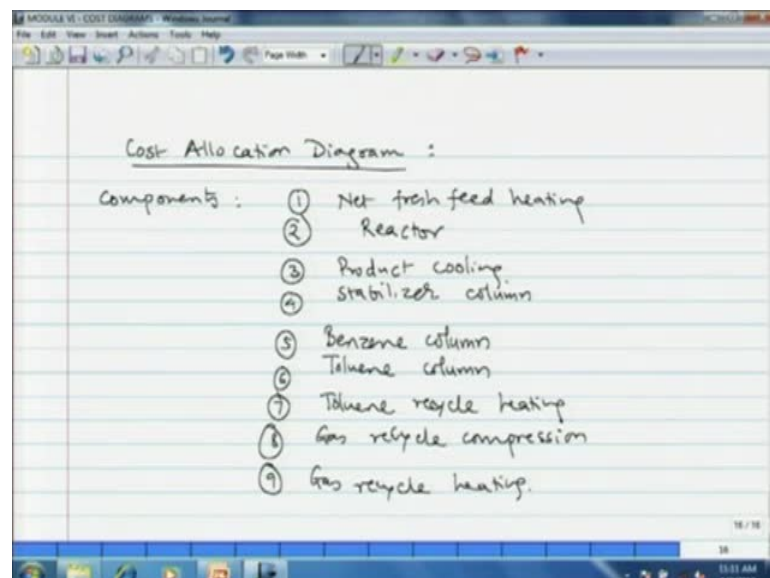 MODULE VI - COST DIAGRAMS - Windows Journal
File Edit View Insert Actions Tools Help
Page Width
Cost Allocation Diagram :
Components : ① Net fresh feed heating
② Reactor
③ Product cooling
④ Stabilizer column
⑤ Benzene column
⑥ Toluene column
⑦ Toluene recycle heating
⑧ Gas recycle compression
⑨ Gas recycle heating.
16 / 16
16
11:11 AM